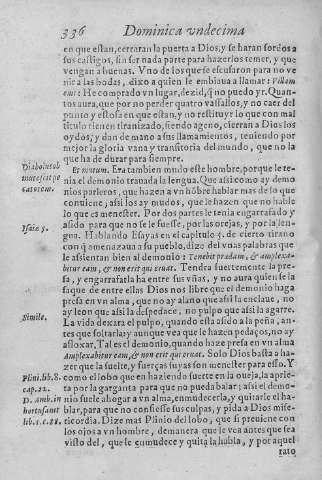 336 Dominica vndecima
en que estan, cerraran la puerta a Dios, y se haran sordos a
sus castigos, sin ser nada parte para hazerlos temer, y que
vengan a buenas. Vno de los que se escusaron para no ve
nir a las bodas, dixo a quien le embiaua a llamar: Villam
emi: He comprado vn lugar, dezid, q̃ no puedo yr. Quan-
tos aura, que por no perder quatro vassallos, y no caer del
punto y estofa en que estan, y no restituyr lo que con mal
titulo tienen tiranizado, siendo ageno, cierran a Dios los
oydos, y dan de mano a sus llamamientos, teniendo por
mejor la gloria vana y transitoria del mundo, que no la
que ha de durar para siempre.
Et mutum. Era tambien mudo este hombre, porque le te-
nia el demonio trauada la lengua. Que assi como ay demo
nios parleros, que hazen a vn hõbre hablar mas de lo que
conuiene, assi los ay mudos, que le hazen que no hable
lo que es menester. Por dos partes le tenia engarrafado y
asido para que no se le fuesse, por las orejas, y por la len-
gua. Hablando Isayas en el capitulo 5. de cierto tirano
con q̃ amenazaua a su pueblo, dize del vnas palabras que
le assientan bien al demonio: Tenebit prædam, & amplexa-
bitur eam, & non erit qui eruat. Tendra fuertemente la pre-
sa, y engarrafarla ha entre sus vñas, y no aura quien se la
saque de entre ellas Dios nos libre que el demonio haga
presa en vn alma, que no ay alano que assi la enclaue, no
ay leon que assi la despedace, no pulpo que assi la agarre.
La vida dexara el pulpo, quando esta asido a la peña, an-
tes que soltarla: y aunque vea que le hazen pedaços, no ay
afloxar, Tal es el demonio, quando haze presa en vn alma
Amplexabitur eam, & non erit qui eruat. Solo Dios basta a ha-
zer que la suelte, y fuerças suyas son menester para esso. Y
como el lobo que en haziendo suerte en la oueja, la aprie-
ta por la garganta para que no pueda balar; assi el demo-
nio suele ahogar a vn alma, enmudecerla, y quitarle el ha-
blar, para que no confiesse sus culpas, y pida a Dios mise-
ricordia. Dize mas Plinio del lobo, que si preuiene con
los ojos a vn hombre, demanera que le vea antes que sea
visto del, que le enmudece y quita la habla, y por aquel
rato
Isaiæ 5.
Simile.
Plini. lib. 8.
cap. 22.
D. Amb. in